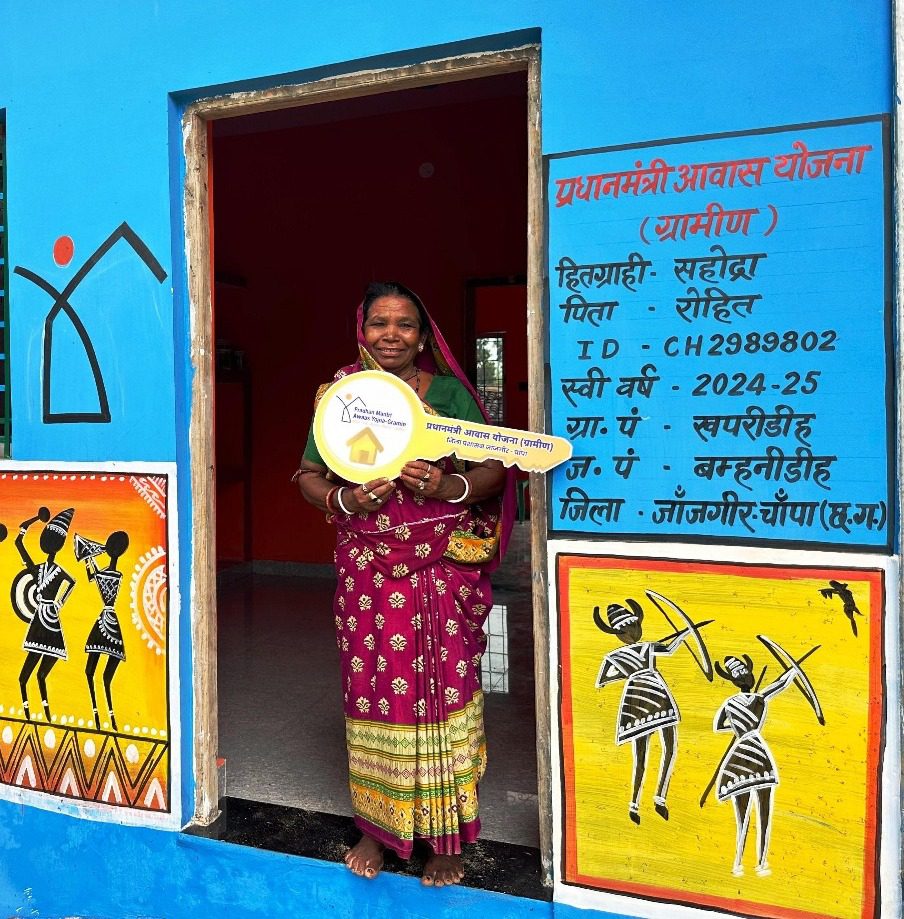 प्रधानमंत्री आवास योजना
(ग्रामीण)
हितग्राही- सहोद्रा
पिता - रोहित
ID - CH2989802
स्वी वर्ष - 2024-25
ग्रा. पं - खपरीडीह
ज. पं - बम्हनीडीह
जिला - जाँजगीर-चाँपा(छ.ग.)
Pradhan Mantri
Awaas Yojna-Gramin
प्रधानमंत्री आवास योजना (ग्रामीण)
जिला पंचायत जांजगीर - चांपा